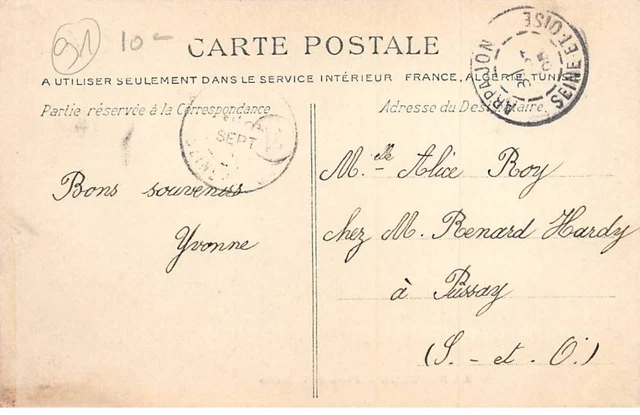 91 10-
CARTE POSTALE
A UTILISER SEULEMENT DANS LE SERVICE INTÉRIEUR FRANCE, ALGÉRIE, TUNIS
Partie réservée à la Correspondance
Adresse du Destinataire.
ARPAJON SEINE-ET-OISE
SEPT
E
Bons souvenus
Yvonne
M.elle Alice Roy
chez M. Renard Hardy
à Pussay
(S.-et-O.)